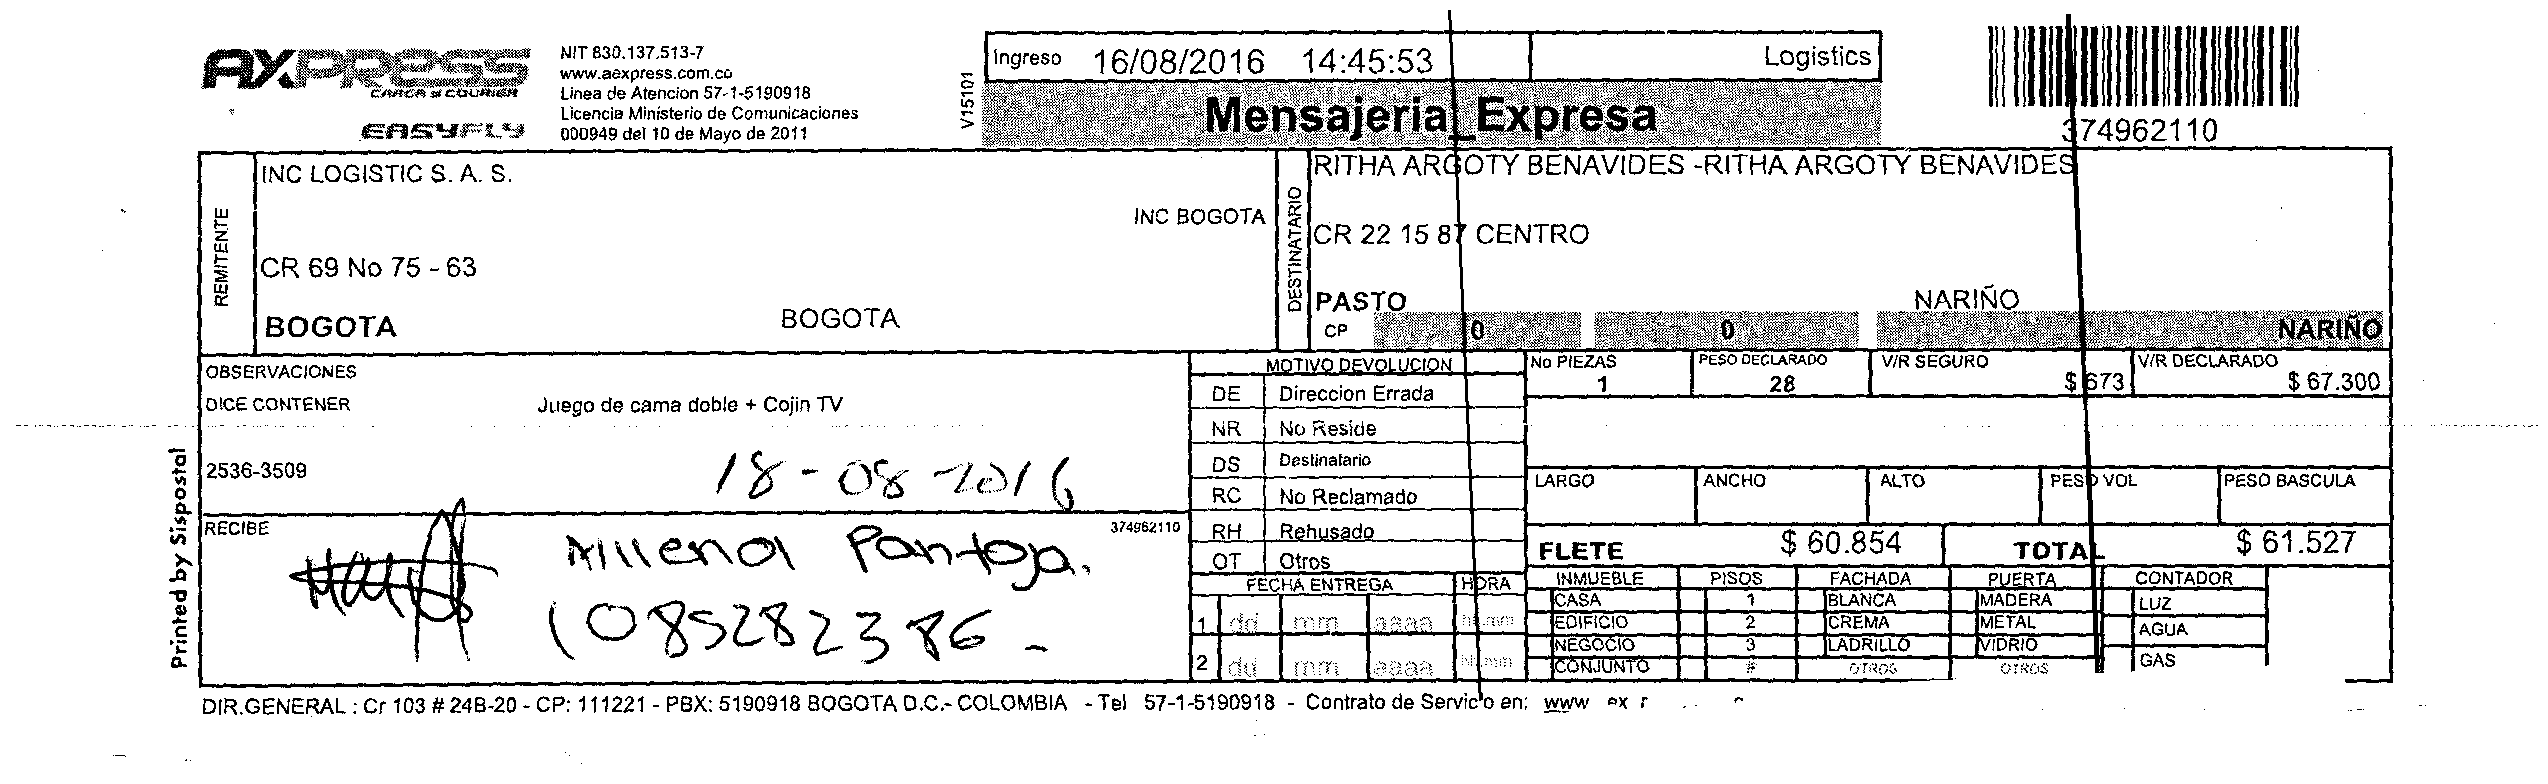 AXPRESS
CARGA & COURIER
EASYFLY
NIT 830.137.513-7
www.aexpress.com.co
Linea de Atencion 57-1-5190918
Licencia Ministerio de Comunicaciones
000949 del 10 de Mayo de 2011
V15101
Ingreso 16/08/2016 14:45:53 Logistics
Mensajeria_Expresa
374962110
REMITENTE
INC LOGISTIC S. A. S.
INC BOGOTA
CR 69 No 75 - 63
BOGOTA BOGOTA
DESTINATARIO
RITHA ARGOTY BENAVIDES -RITHA ARGOTY BENAVIDES
CR 22 15 87 CENTRO
PASTO NARIÑO
CP 0 0 NARIÑO
OBSERVACIONES
DICE CONTENER Juego de cama doble + Cojin TV
2536-3509 18-08-2016
RECIBE 374962110
Milena Pantoja.
1085282386-
MOTIVO DEVOLUCION
DE Direccion Errada
NR No Reside
DS Destinatario
RC No Reclamado
RH Rehusado
OT Otros
FECHA ENTREGA HORA
1 dd mm aaaa hh:mm
2 dd mm aaaa hh:mm
No PIEZAS PESO DECLARADO V/R SEGURO V/R DECLARADO
1 28 $ 673 $ 67.300
LARGO ANCHO ALTO PESO VOL PESO BASCULA
FLETE $ 60.854 TOTAL $ 61.527
INMUEBLE PISOS FACHADA PUERTA CONTADOR
CASA 1 BLANCA MADERA LUZ
EDIFICIO 2 CREMA METAL AGUA
NEGOCIO 3 LADRILLO VIDRIO GAS
CONJUNTO # OTROS OTROS
Printed by Sispostal
DIR.GENERAL : Cr 103 # 24B-20 - CP: 111221 - PBX: 5190918 BOGOTA D.C.- COLOMBIA - Tel 57-1-5190918 - Contrato de Servicio en: www